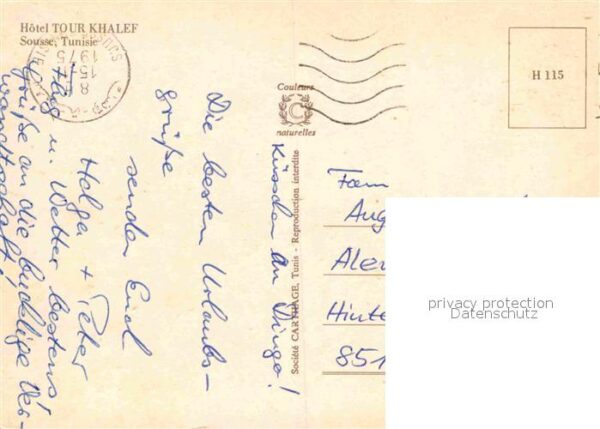 Hôtel TOUR KHALEF
Sousse, Tunisie
1975
15-
8
H 115
Couleurs
C
naturelles
Société CARTHAGE, Tunis - Reproduction interdite
Die besten Urlaubs-
grüße
senden Euch
Helga + Peter
Hotel u. Wetter bestens!
Grüße an die bucklige Ver-
wandtschaft!
Küsschen an Dingo!
Fam
Aug
Alex
Hinte
851
privacy protection
Datenschutz